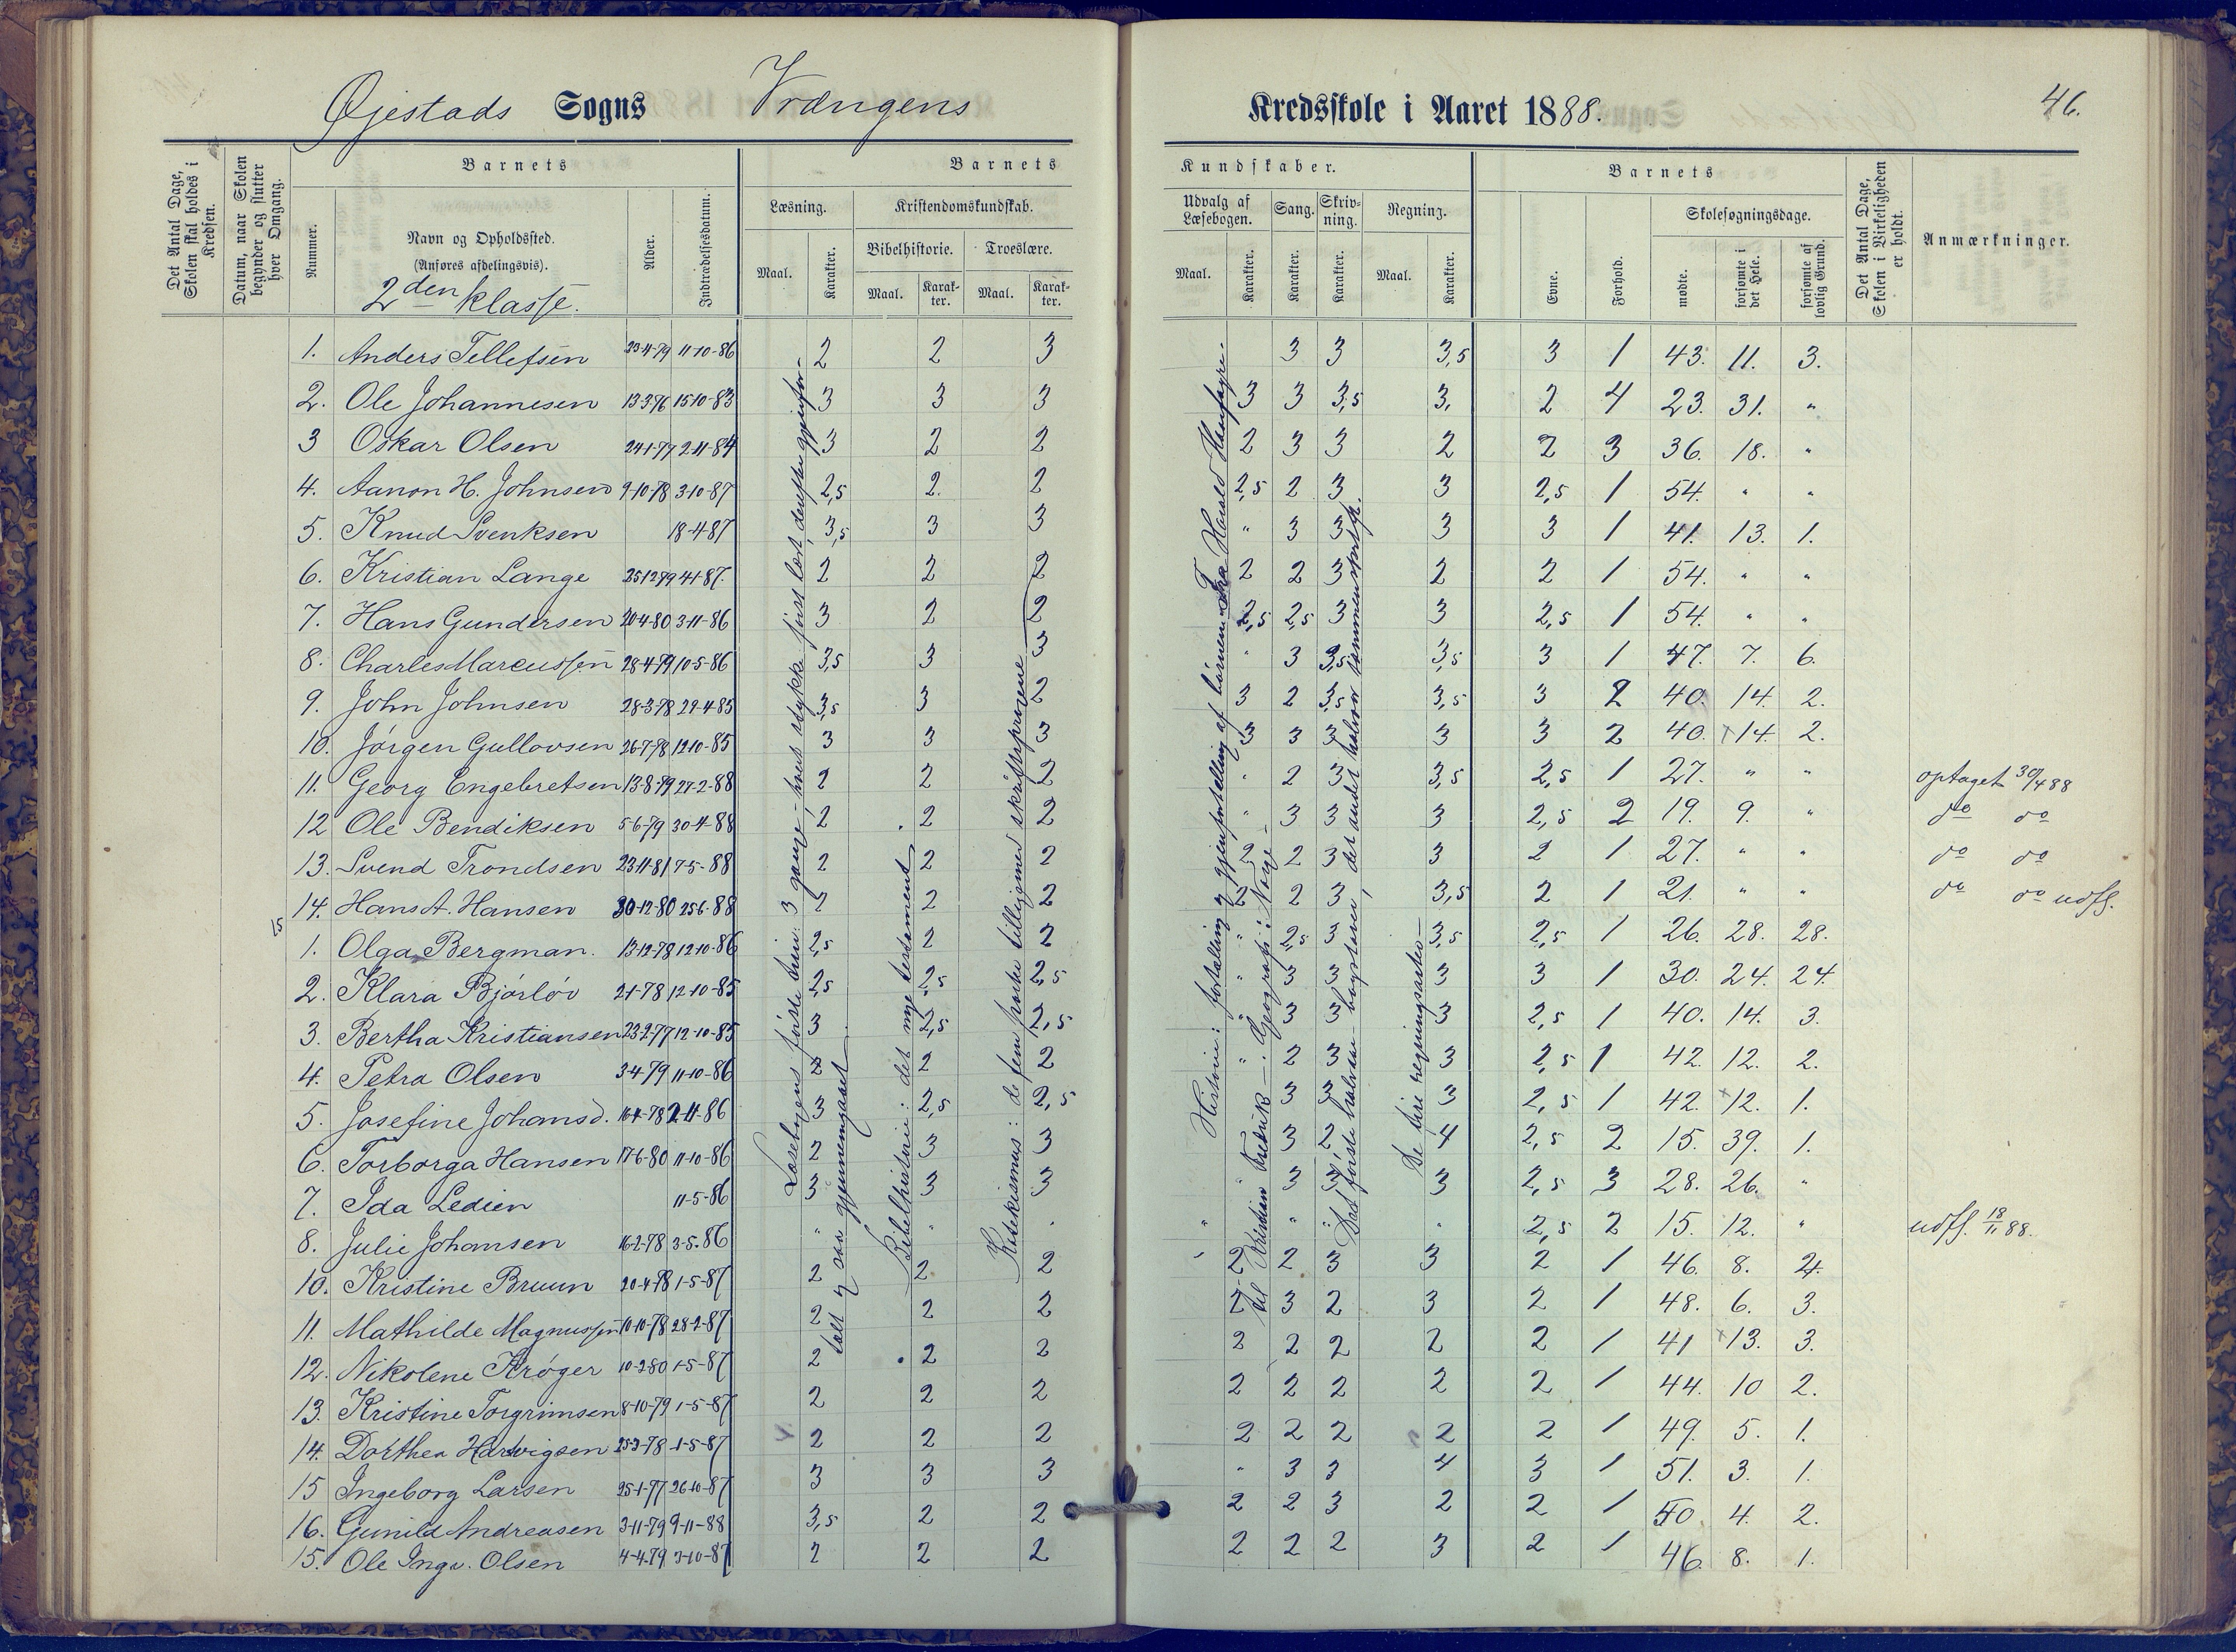 Øjestads Sogns Vrængens Kredsskole i Aaret 1888. 46.
Det Antal Dage, Skolen skal holdes i Kredsen.
Datum, naar Skolen begynder og slutter hver Omgang.
Barnets
Nummer.
Navn og Opholdssted.
(Anføres afdelingsvis).
2den klasse.
Alder.
Indtrædelsesdatum.
Barnets
Læsning.
Maal.
Karakter.
Kristendomskundskab.
Bibelhistorie.
Troeslære.
Maal.
Karakter.
Maal.
Karakter.
Kundskaber.
Udvalg af Læsebogen.
Sang.
Skrivning.
Regning.
Maal.
Karakter.
Karakter.
Karakter.
Maal.
Karakter.
Barnets
Evne.
Forhold.
Skolesøgningsdage.
mødte.
forsømte i det Hele.
forsømte af lovlig Grund.
Det Antal Dage, Skolen i Virkeligheden er holdt.
Anmærkninger.
1. Anders Tellefsen 23-4-79 11-10-86 2 2 3 3 3 3,5 3 1 43. 11. 3.
2. Ole Johannesen 13-3-76 15-10-83 3 3 3 3 3 3,5 3, 2 4 23. 31. "
3 Oskar Olsen 24-1-77 2-11-84 3 2 2 2 3 3 2 2 3 36. 18. "
4. Aanon H. Johnsen 9-10-78 3-10-87 2,5 2. 2 2,5 2 3 3 2,5 1 54. " "
5. Knud Svenksen 18-4-87 3,5 3 3 " 3 3 3 3 1 41. 13. 1.
6. Kristian Lange 25-12-79 4-1-87. 2 2 2 2 2 3 2 2 1 54. " "
7. Hans Gundersen 20-4-80 3-11-86 3 2 2 2,5 2,5 3 3 2,5 1 54. " "
8. Charles Marcussen 28-4-79 10-5-86 3,5 3 3 " 3 3,5 3,5 3 1 47. 7. 6.
9. John Johnsen 28-3-78 29-4-85 3,5 3 2 3 2 3,5 3,5 3 2 40. 14. 2.
10. Jørgen Gullovsen 26-7-78 12-10-85 3 3 3 3 3 3 3 3 2 40. 14. 2.
11. Georg Engebretsen 13-8-79 27-2-88 2 2 2 " 2 3 3,5 2,5 1 27. " " optaget 30/4 88
12 Ole Bendiksen 5-6-79 30-4-88 2 2 2 " 3 3 3 2,5 2 19. 9. " do do
13. Svend Trondsen 23-11-81 7-5-88 2 2 2 2 2 3 3 2 1 27. " " do do
14. Hans A. Hansen 30-12-80 25-6-88 2 2 2 2 2 3 3,5 2 1 21. " " do do udfl.
15
1. Olga Bergman. 13-12-78 12-10-86 2,5 2 2 " 2,5 3 3,5 2,5 1 26. 28. 28.
2. Klara Bjørløv 2-1-78 12-10-85 2,5 2,5 2,5 " 3 3 3 3 1 30. 24. 24.
3. Bertha Kristiansen 23-2-77 12-10-85 3 2,5 2,5 " 3 3 3 2,5 1 40. 14. 3.
4. Petra Olsen 3-4-79 11-10-86 2 2 2 " 2 3 3 2,5 1 42. 12. 2.
5. Josefine Johansd. 16-4-78 2-11-86 3 2,5 2,5 3 3 3 2,5 1 42. 12. 1.
6. Torborga Hansen 17-6-80 11-10-86 2 3 3 3 2 4 2,5 2 15. 39. 1.
7. Ida Ledien 11-5-86 3 3 3 " 3 3 3 2,5 3 28. 26. "
8. Julie Johansen 16-2-78 3-5-86 " " " " " " " 2,5 2 15. 12. " udfl. 18/11 88.
10. Kristine Bruun 20-4-78 1-5-87 2 2 2 2 2 3 3 2 1 46. 8. 2.
11. Mathilde Magnussen 10-10-78 28-2-87 2 2 2 2 3 2 3 2 1 48. 6. 3.
12. Nikolene Krøger 10-2-80 1-5-87 2 2 2 2 2 2 2 2 1 41 13. 3.
13. Kristine Torgrimsen 8-10-79 1-5-87 2 2 2 2 2 2 2 2 1 44. 10 2.
14. Dorthea Hartvigsen 25-3-78 1-5-87 2 2 2 2 2 2 2 2 1 49. 5. 1.
15 Ingeborg Larsen 25-1-77 26-10-87 3 3 3 " 3 3 4 3 1 51. 3. 1.
16. Gunild Andreasen 3-11-79 9-11-88 3,5 2 2 2 2 3 2 2 1 50. 4. 2.
15. Ole Ingv. Olsen 4-4-79 3-10-87 2 2 2 2 2 2 3 2 1 46. 8. 1.
Læsebogens første trin: 3 gange; hvert stykke først læst, derefter gjenfor-
talt og saa gjennemgaaet
Bibelhistorie: det nye testament
Katekismus: de fem parter tilligemed skriftsprogene
Historie: fortælling og gjenfortælling af børnene Fra Harald Haarfagre.
til Kristian Fredrik —. Geografi: Norge —
Det første halvaar bogstaver, det andet halvaar sammenskrift.
De fire regningsarter —